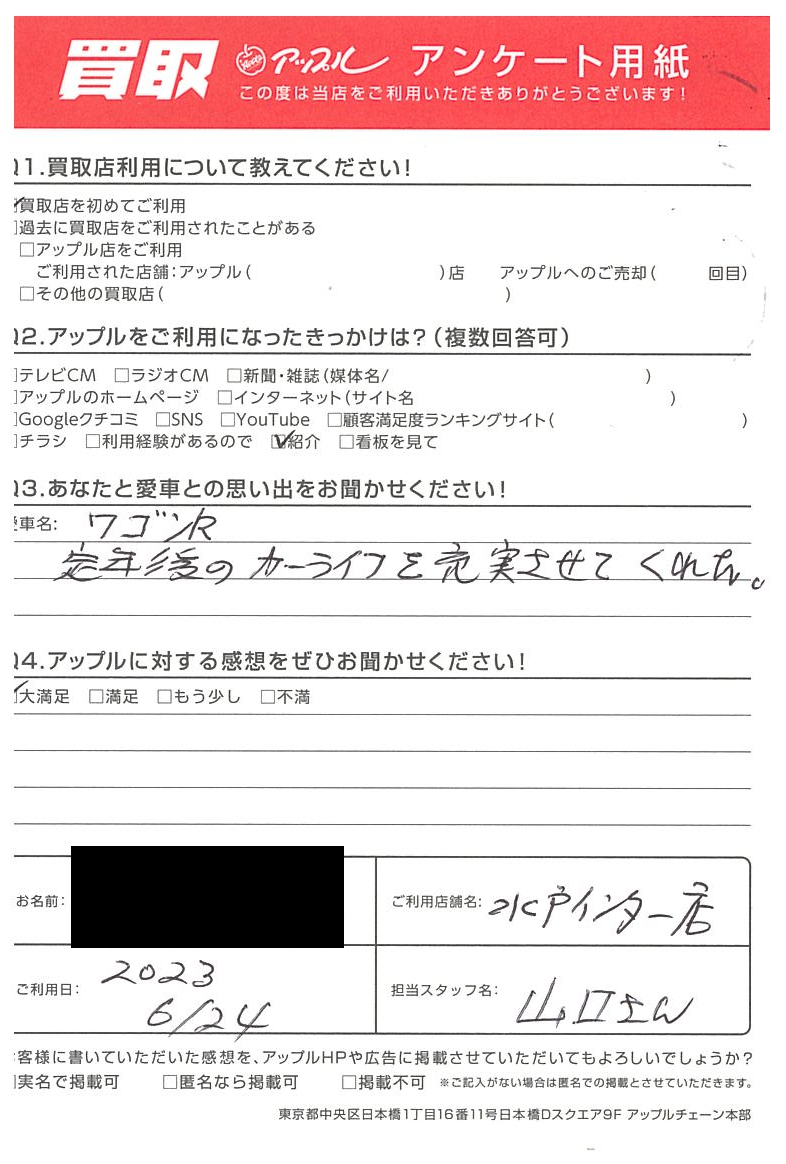 買取 アップル アンケート用紙
この度は当店をご利用いただきありがとうございます!
Q1.買取店利用について教えてください!
買取店を初めてご利用
□過去に買取店をご利用されたことがある
□アップル店をご利用
ご利用された店舗:アップル( )店 アップルへのご売却( 回目)
□その他の買取店( )
Q2.アップルをご利用になったきっかけは?(複数回答可)
□テレビCM □ラジオCM □新聞・雑誌(媒体名/ )
□アップルのホームページ □インターネット(サイト名 )
□Googleクチコミ □SNS □YouTube □顧客満足度ランキングサイト( )
□チラシ □利用経験があるので ☑紹介 □看板を見て
Q3.あなたと愛車との思い出をお聞かせください!
愛車名: ワゴンR
定年後のカーライフを充実させてくれた。
Q4.アップルに対する感想をぜひお聞かせください!
☑大満足 □満足 □もう少し □不満
お名前:
ご利用店舗名: 水戸インター店
ご利用日: 2023
6/24
担当スタッフ名: 山口さん
お客様に書いていただいた感想を、アップルHPや広告に掲載させていただいてもよろしいでしょうか?
□実名で掲載可 □匿名なら掲載可 □掲載不可 ※ご記入がない場合は匿名での掲載とさせていただきます。
東京都中央区日本橋1丁目16番11号日本橋Dスクエア9F アップルチェーン本部